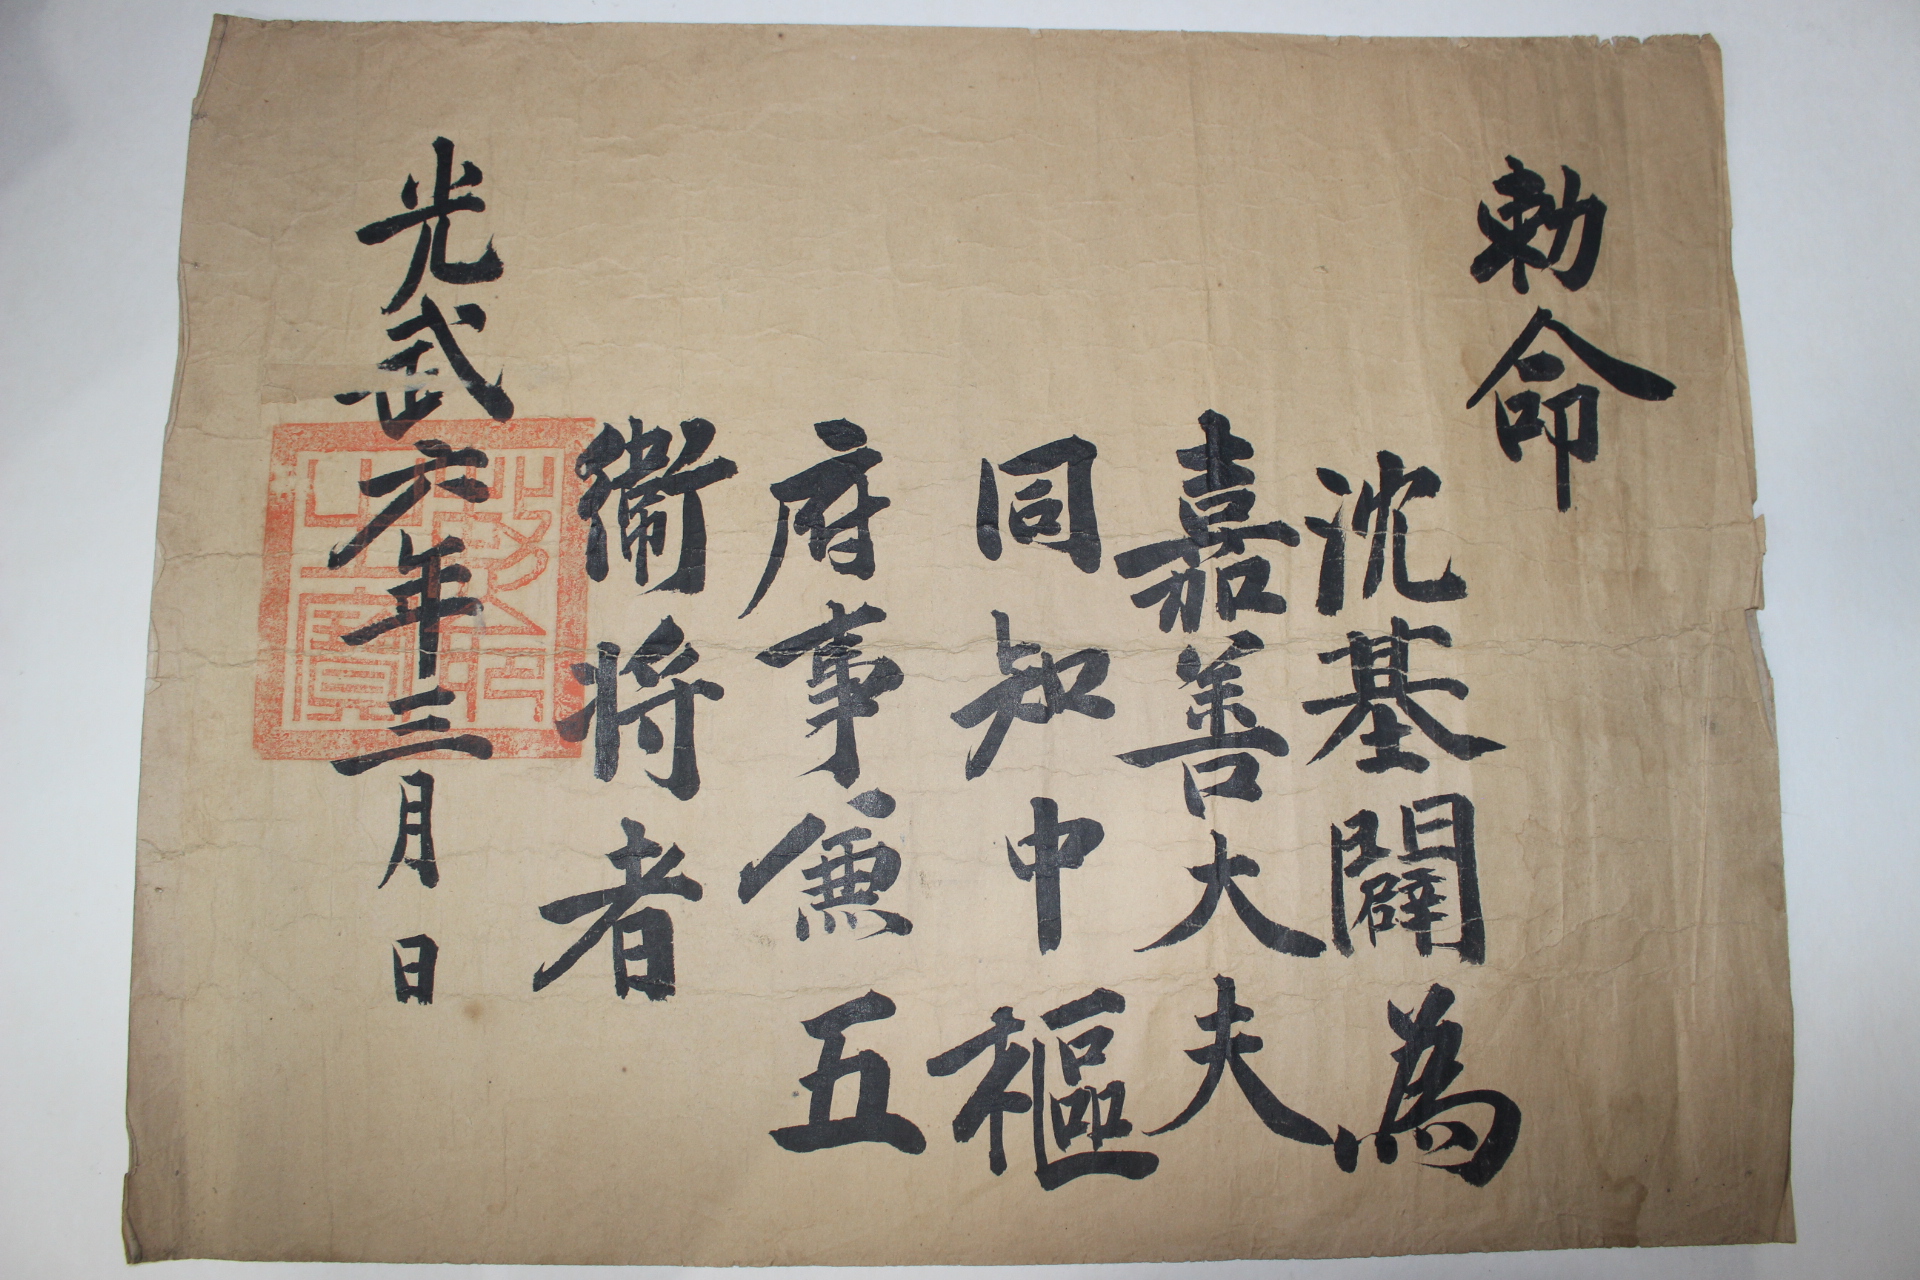 勅命
沈基闢為
嘉善大夫
同知中樞
府事兼五
衛将者
光武六年三月日